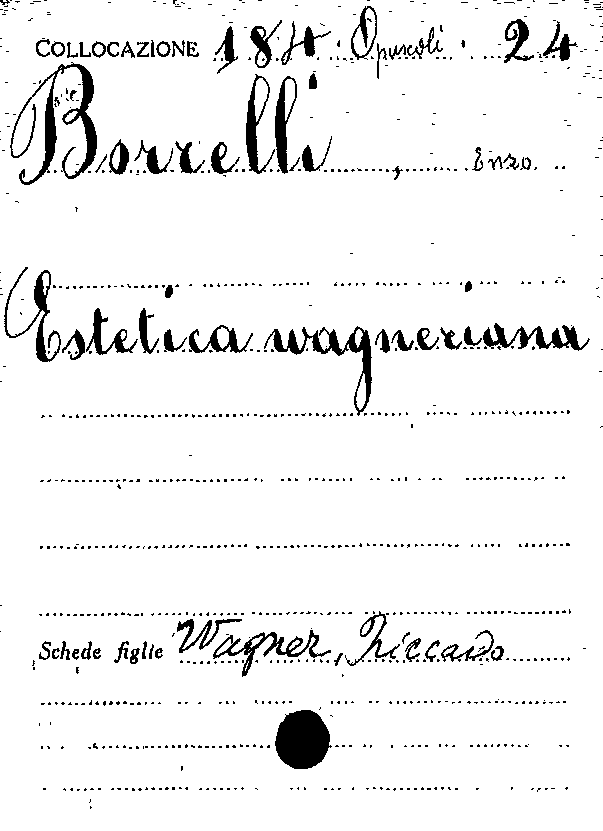 COLLOCAZIONE Opuscoli. 24
Borrelli, Enzo
Estetica wagneriana
Schede figlie Wagner, Riccardo